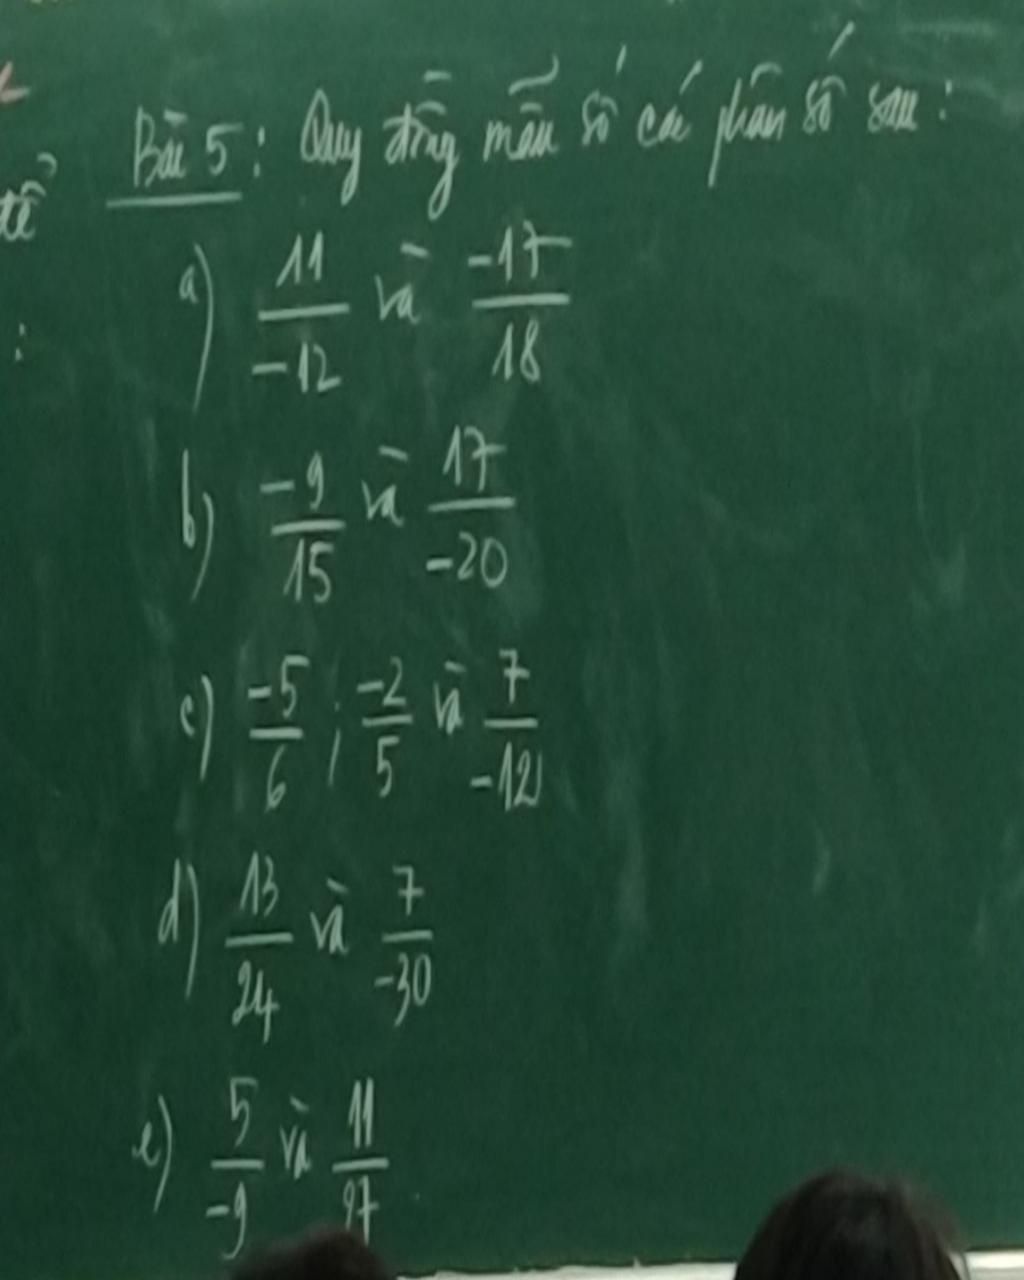 Bài 5: Quy đồng mẫu số các phân số sau:
để
:
a) 11/-12 và -17/18
b) -9/15 và 17/-20
c) -5/6 ; -2/5 và 7/-12
d) 13/24 và 7/-30
e) 5/-9 và 11/27